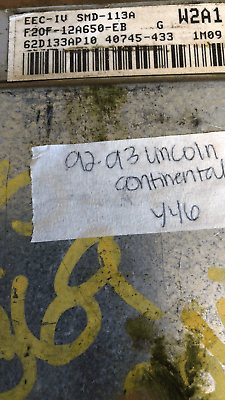 EEC-IV SMD-113A W2A1
F2OF-12A650-EB G
62D133AP10 40745-433 1M09
92-93 Lincoln
Continental
Y46